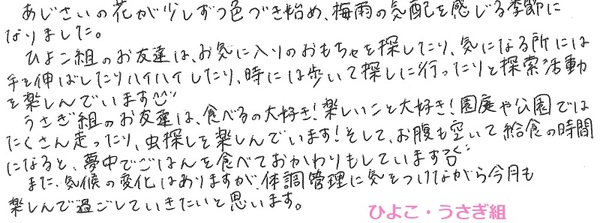 あじさいの花が少しずつ色づき始め、梅雨の気配を感じる季節に
なりました。
ひよこ組のお友達は、お気に入りのおもちゃを探したり、気になる所には
手を伸ばしたりハイハイしたり、時には歩いて探しに行ったりと探索活動
を楽しんでいます
うさぎ組のお友達は、食べるの大好き!楽しいこと大好き!園庭や公園では
たくさん走ったり、虫探しを楽しんでいます!そして、お腹も空いて給食の時間
になると、夢中でごはんを食べておかわりもしています
また、気候の変化はありますが、体調管理に気をつけながら今月も
楽しんで過ごしていきたいと思います。
ひよこ・うさぎ組